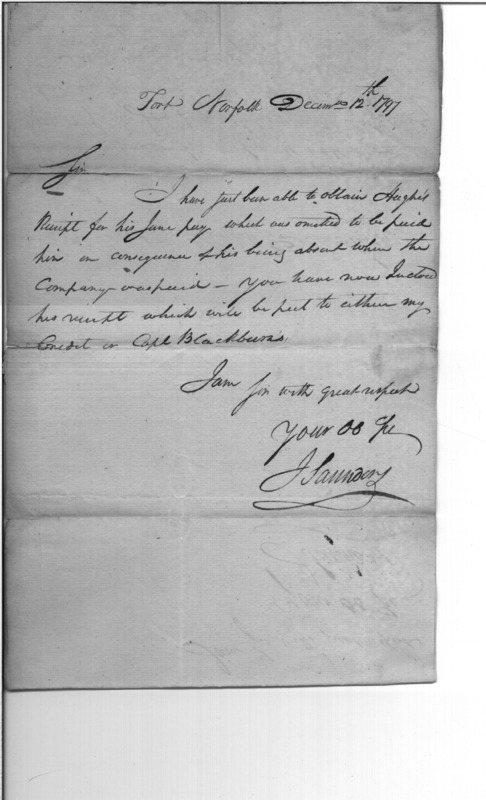 Fort Norfolk Decemr 12th 1797
Sir
I have just been able to obtain Hugh's
Receipt for his June pay which was omitted to be paid
him in consequence of his being absent when the
Company was paid – you have now Inclosed
his receipt which will be put to either my
Credit or Capt Blackburn's
I am Sir with great respect
Your Ob Se
J Saunders